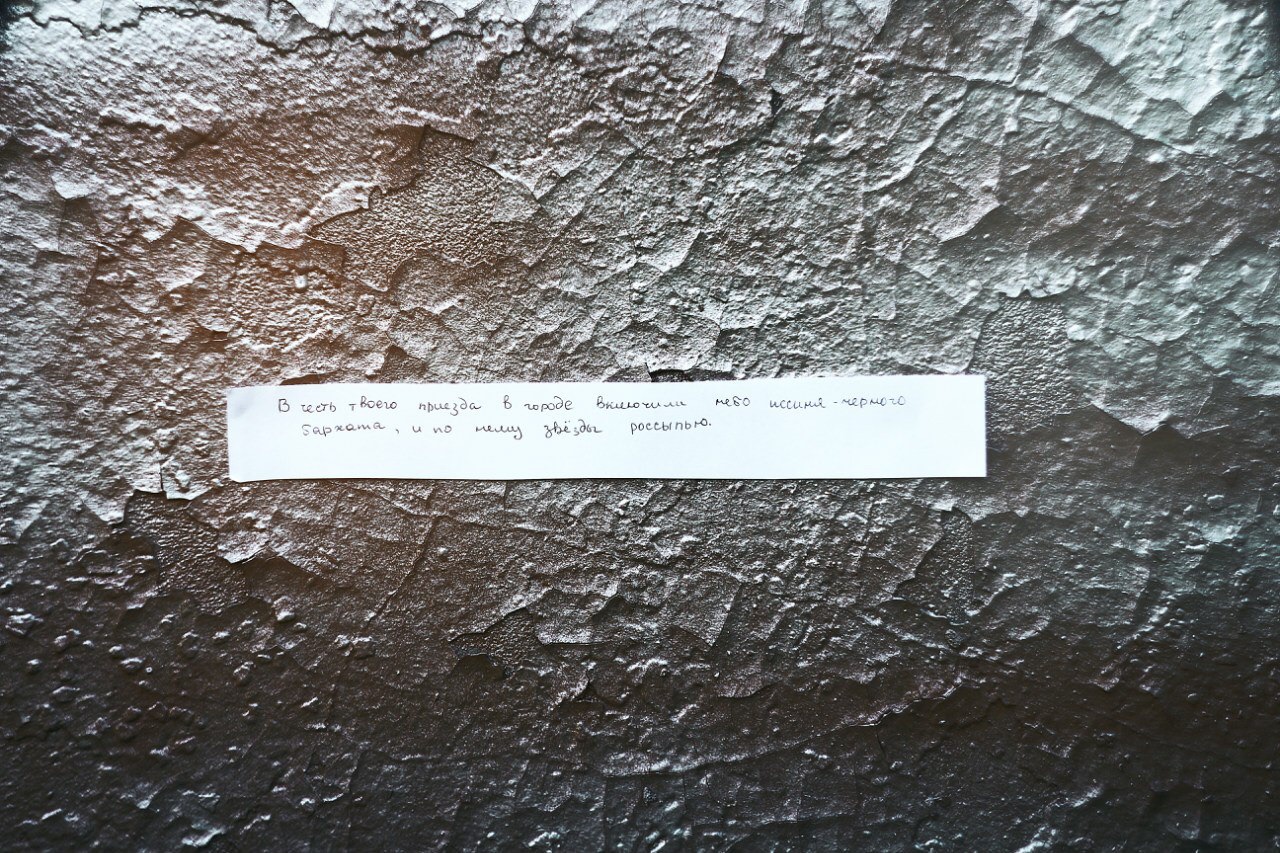 В честь твоего приезда в городе включили небо иссиня-черного
бархата, и по нему звёзды россыпью.